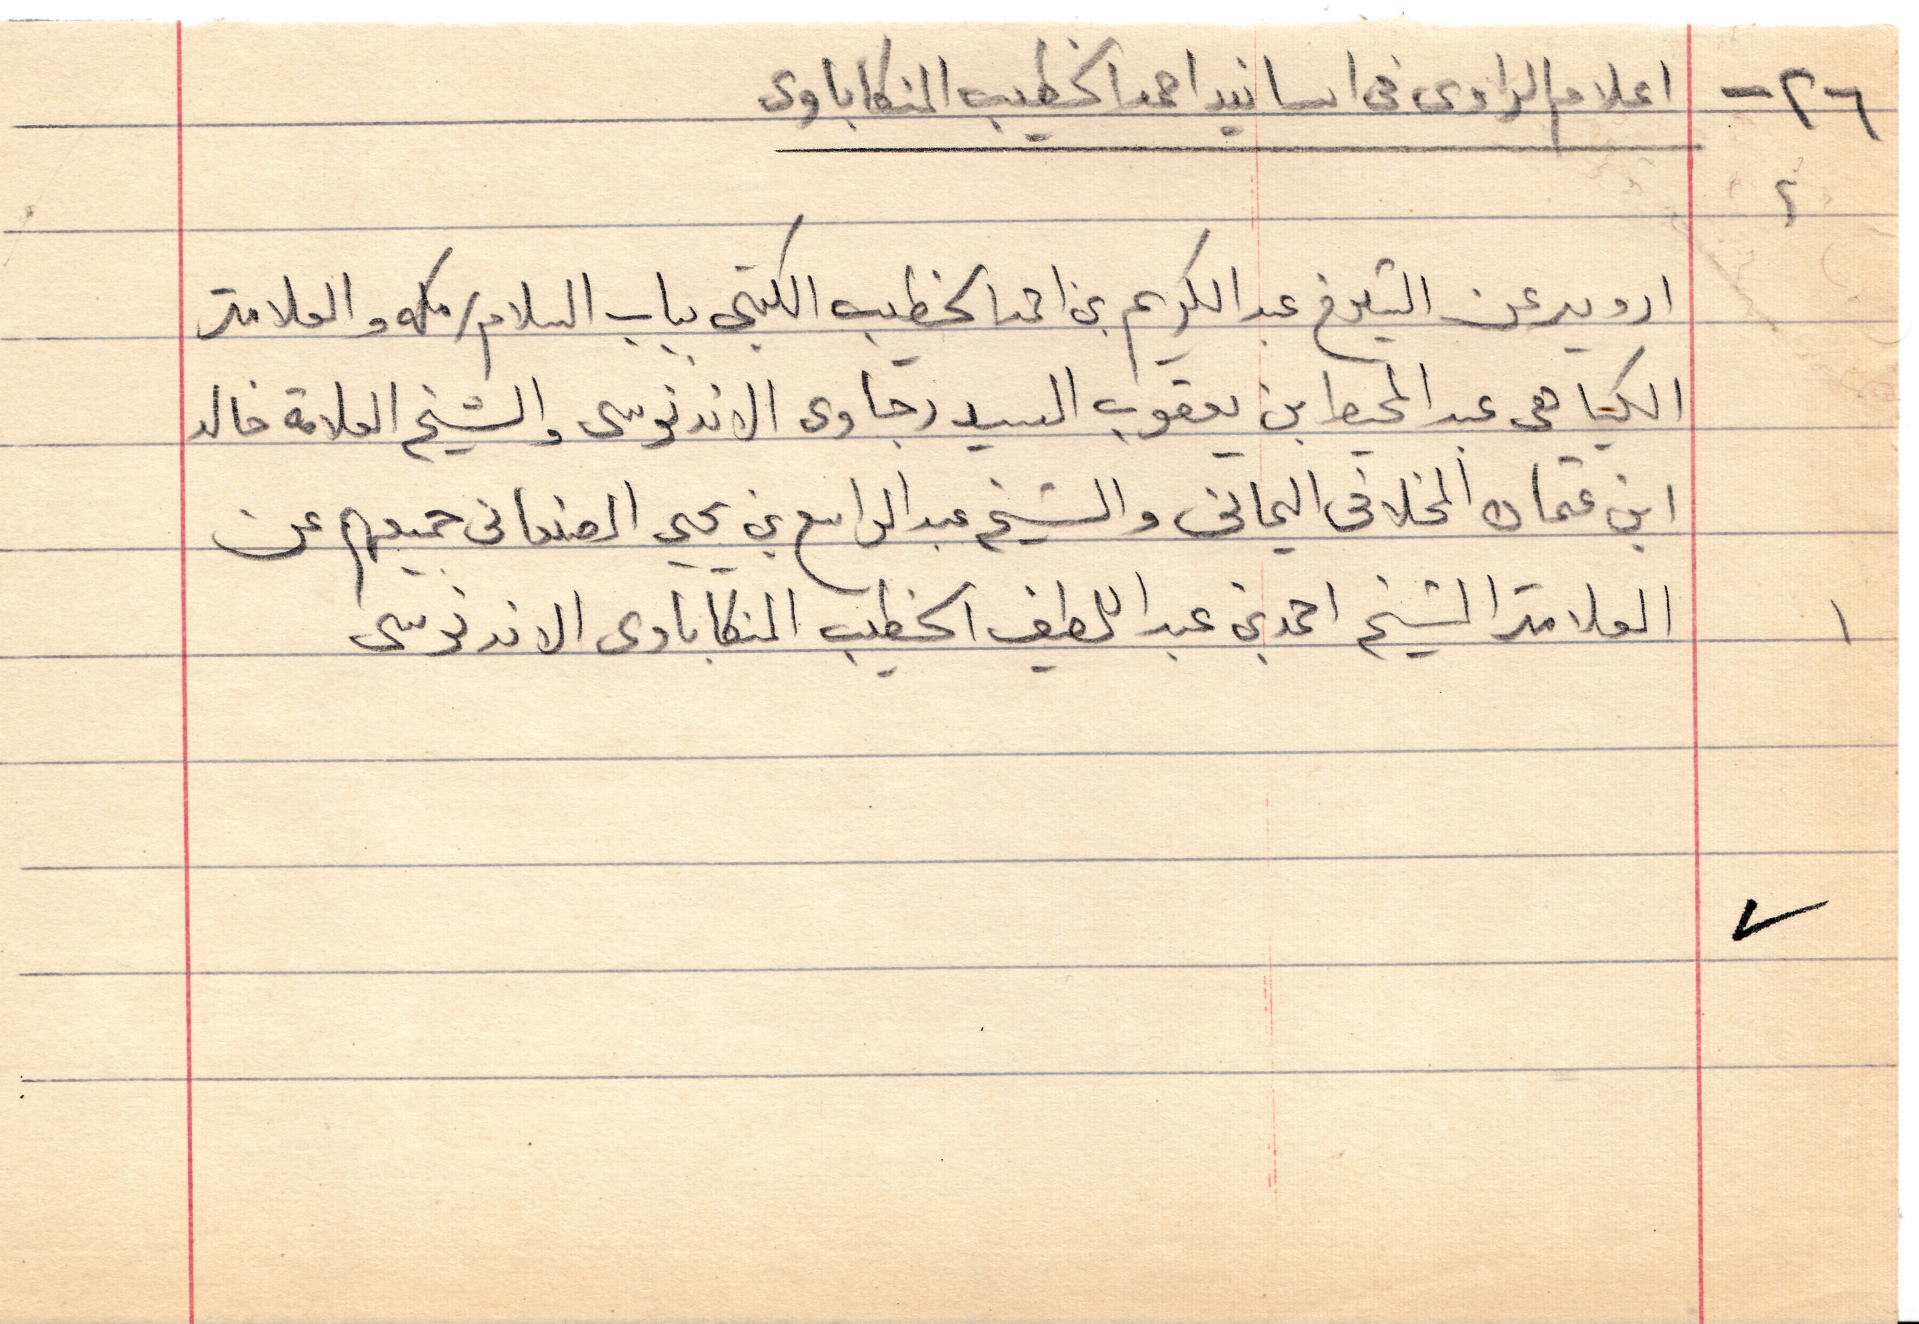 ٢٦- اعلام الراوى فى اسانيد احمد الخطيب المنكاباوى
٢
ارويه عن الشيخ عبد الكريم بن احمد الخطيب الكتبى بباب السلام بمكه والعلامة
الكياهى عبد المحيط بن يعقوب السيدرجاوى الاندنوسى والشيخ العلامة خالد
ابن عثمان المخلافى اليمانى والشيخ عبد الواسع بن يحيى الصنعانى جميعهم عن
١ العلامة الشيخ احمد بن عبد اللطيف الخطيب المنكاباوى الاندنوسى